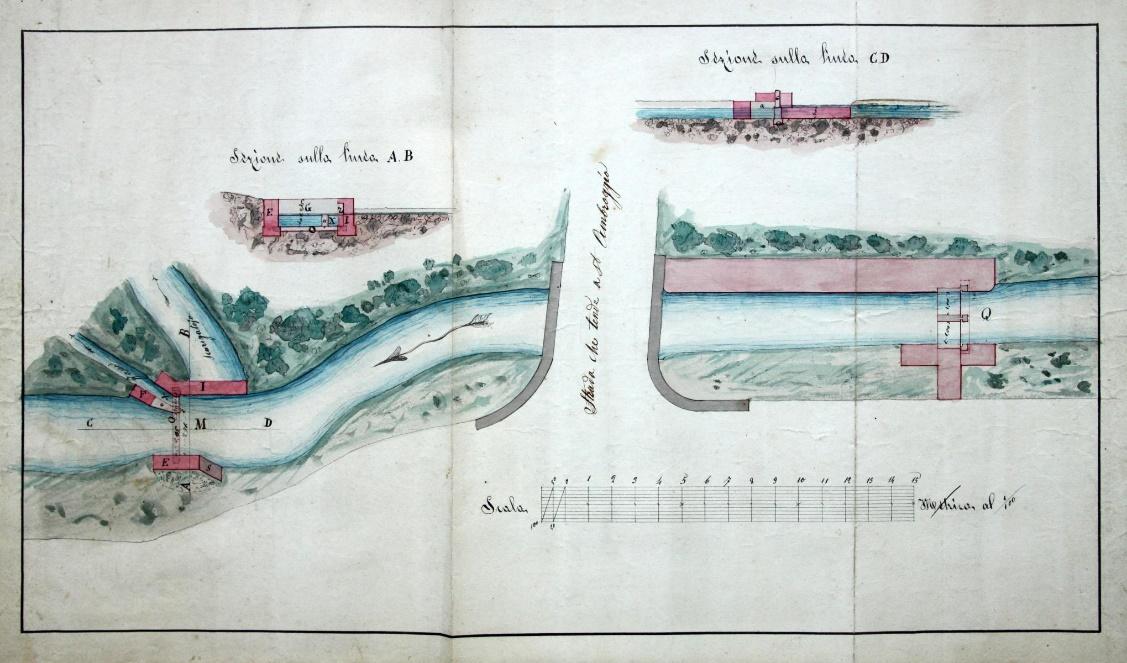 Sezione sulla linea C D
Sezione sulla linea A. B
E G X I
O
a
Strada che tende a St Ambroggio
B
I
F
C O M D
E S
A
Q
Scala
0 1 2 3 4 5 6 7 8 9 10 11 12 13 14 15
Metrica al 1/100